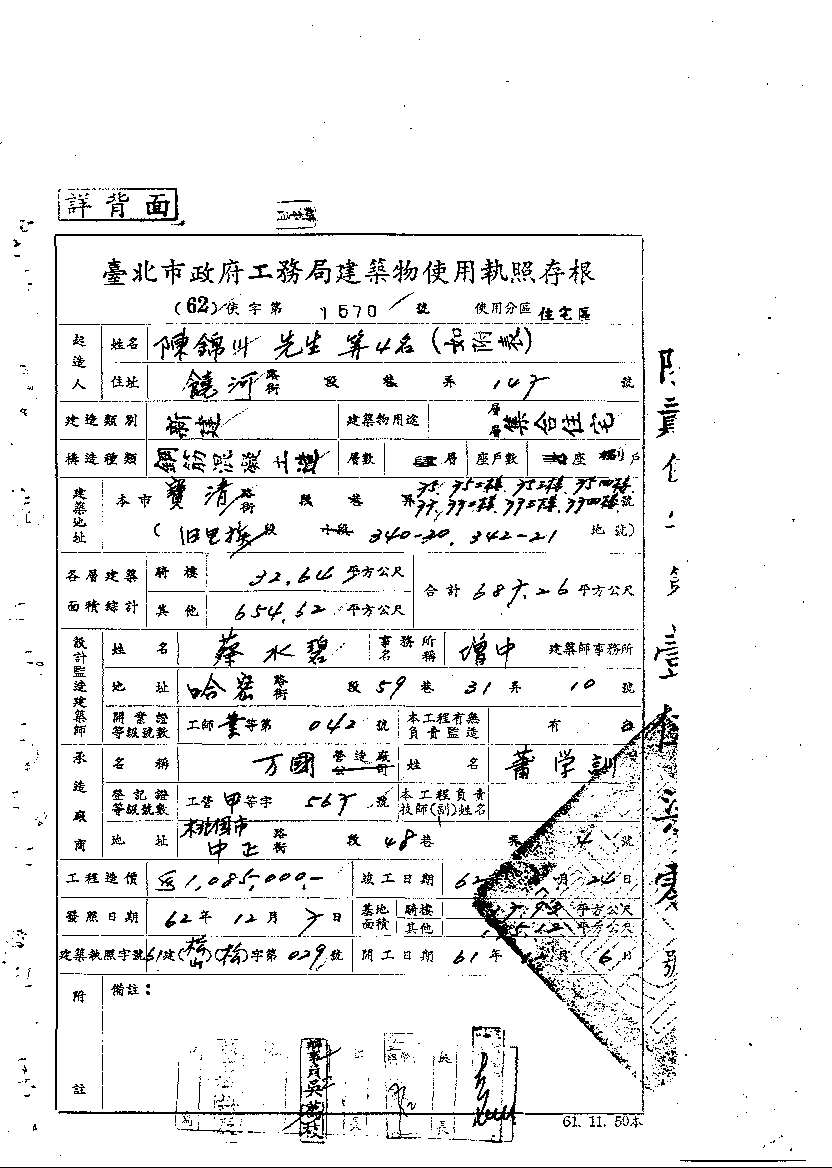 詳背面
臺北市政府工務局建築物使用執照存根
(62)使字第 1570 號 使用分區 住宅區
起造人 姓名 陳錦 先生等4名(如附表)
住址 饒河 路街 段 巷 弄 147 號
建造類別 新建 建築物用途 層層 集合住宅
構造種類 鋼筋混凝土造 層數 層 座戶數 座 戶
建築地址 本市 寶清 路街 段 巷 弄 號
(旧里族段 小段 340-20, 342-21 地號)
各層建築面積綜計 騎樓 32.64 平方公尺 合計 687.26 平方公尺
其他 654.62 平方公尺
設計監造建築師 姓名 蔡水碧 事務所名稱 增中 建築師事務所
地址 哈密 路街 段 59 巷 31 弄 10 號
開業證等級號數 工師業等第 042 號 本工程有無負責監造 有
承造廠商 名稱 万國 營造廠公司 姓名 蕭学訓
登記證等級號數 工營甲等字 567 號 本工程負責技師(副)姓名
地址 桃園市 中正 路街 段 48 巷 弄 4 號
工程造價 1,085,000.- 竣工日期 62 月 24 日
發照日期 62 年 12 月 7 日 基地面積 騎樓 平方公尺
其他 平方公尺
建築執照字號 61建(松山)(松)字第 029 號 開工日期 61 年 6 日
附註 備註：
61.11.50本